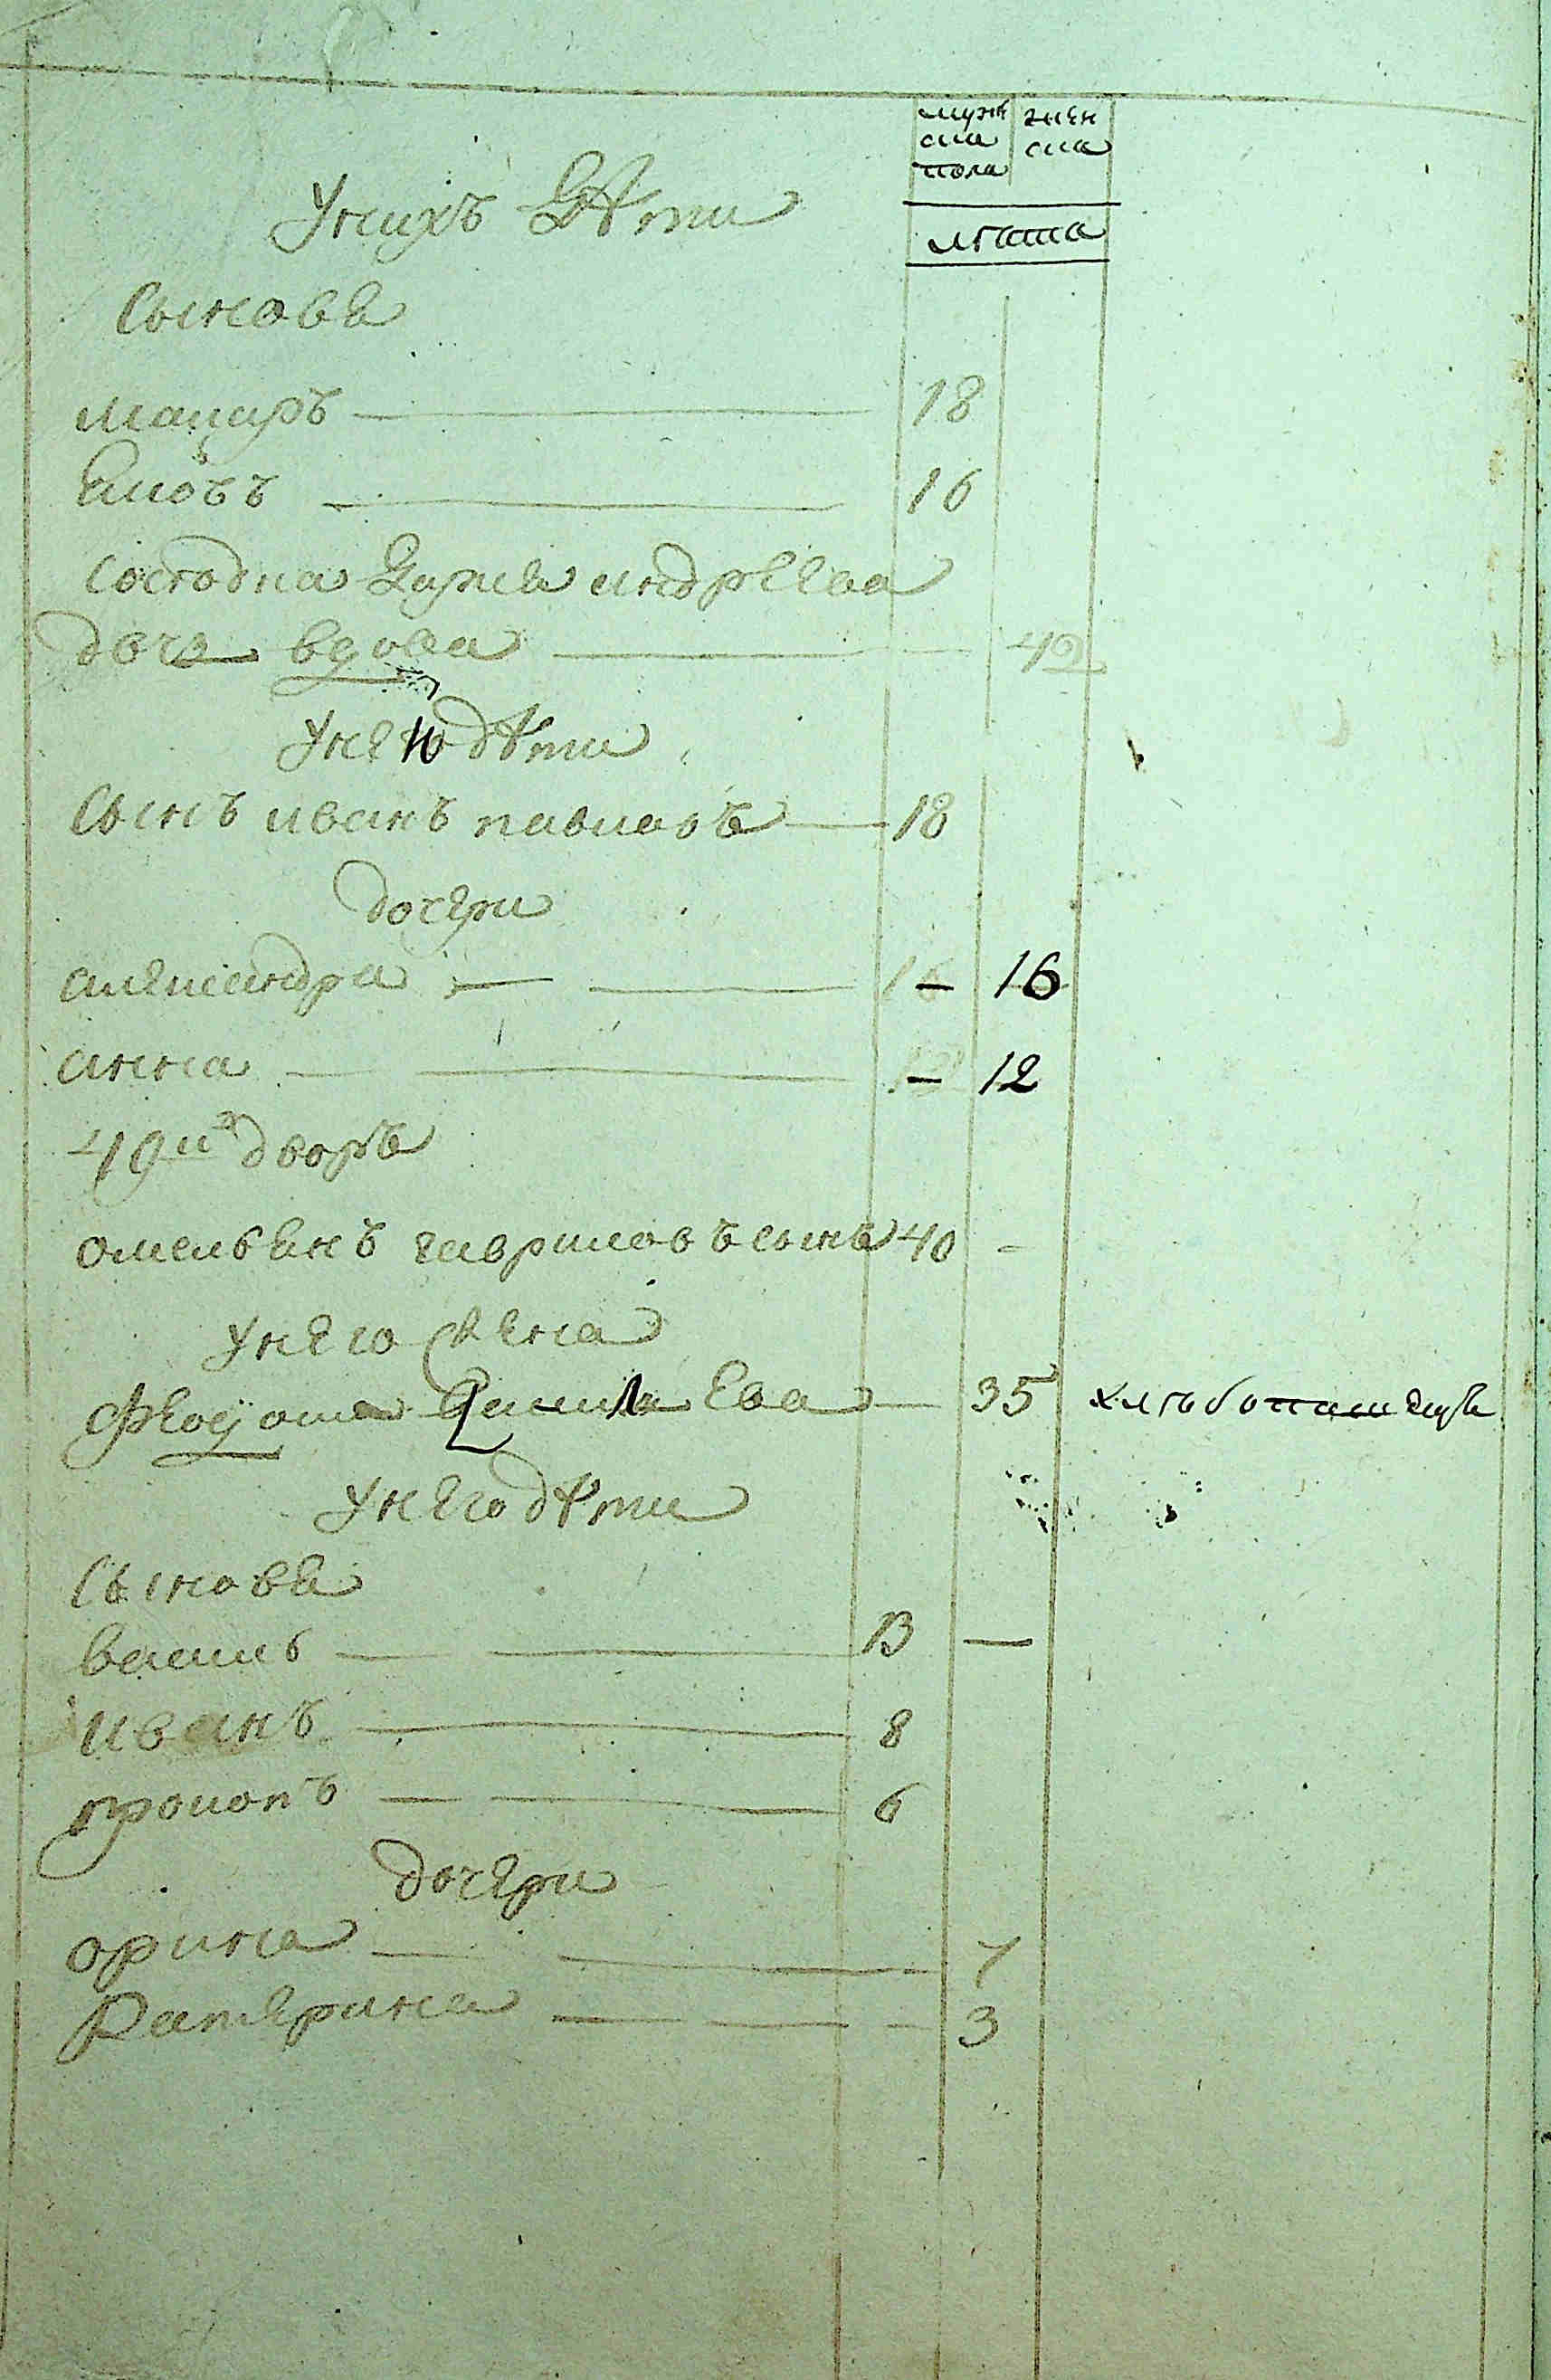 мужска пола женска
лѣта
У нихъ дѣти
Сынове
макаръ 18
Яковъ 16
андрѣева
дочь вдова 42
У нею дѣти
Сынъ иванъ павловъ 18
дочери
александра 16 — 16
анна — 12
49й дворъ
омельянъ гавриловъ сынъ 40 -
У него жена
данилова 35 хлѣбопашецъ
У него дѣти
Сынове
василь 13 —
иванъ 8
прокопъ 6
дочери
орина 7
катерина 3